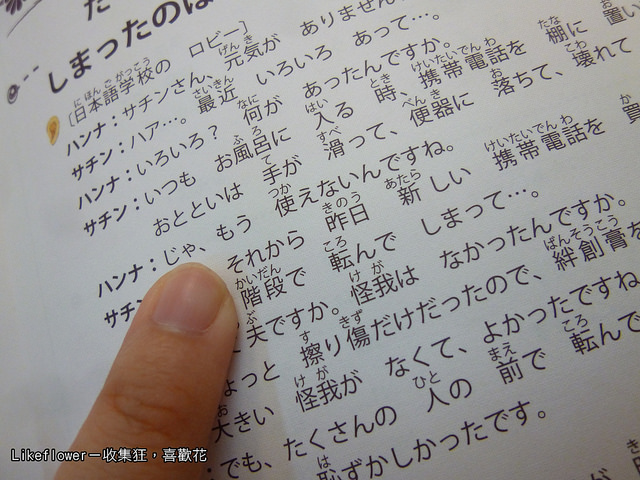 た
しまったのは
［日本語学校の ロビー］
ハンナ：サチンさん、元気が ありません
サチン：ハア…。最近、いろいろ あって…。
ハンナ：いろいろ？ 何が あったんですか。
サチン：いつも お風呂に 入る 時、携帯電話を 棚に 置い
おとといは 手が 滑って、便器に 落ちて、壊れて
ハンナ：じゃ、もう 使えないんですね。
サチ それから 昨日 新しい 携帯電話を 買
階段で 転んで しまって…。
夫ですか。怪我は なかったんですか。
ょっと 擦り傷だけだったので、絆創膏を
大きい 怪我が なくて、よかったですね
：でも、たくさんの 人の 前で 転んで
恥ずかしかったです。
Likeflower－收集狂，喜歡花